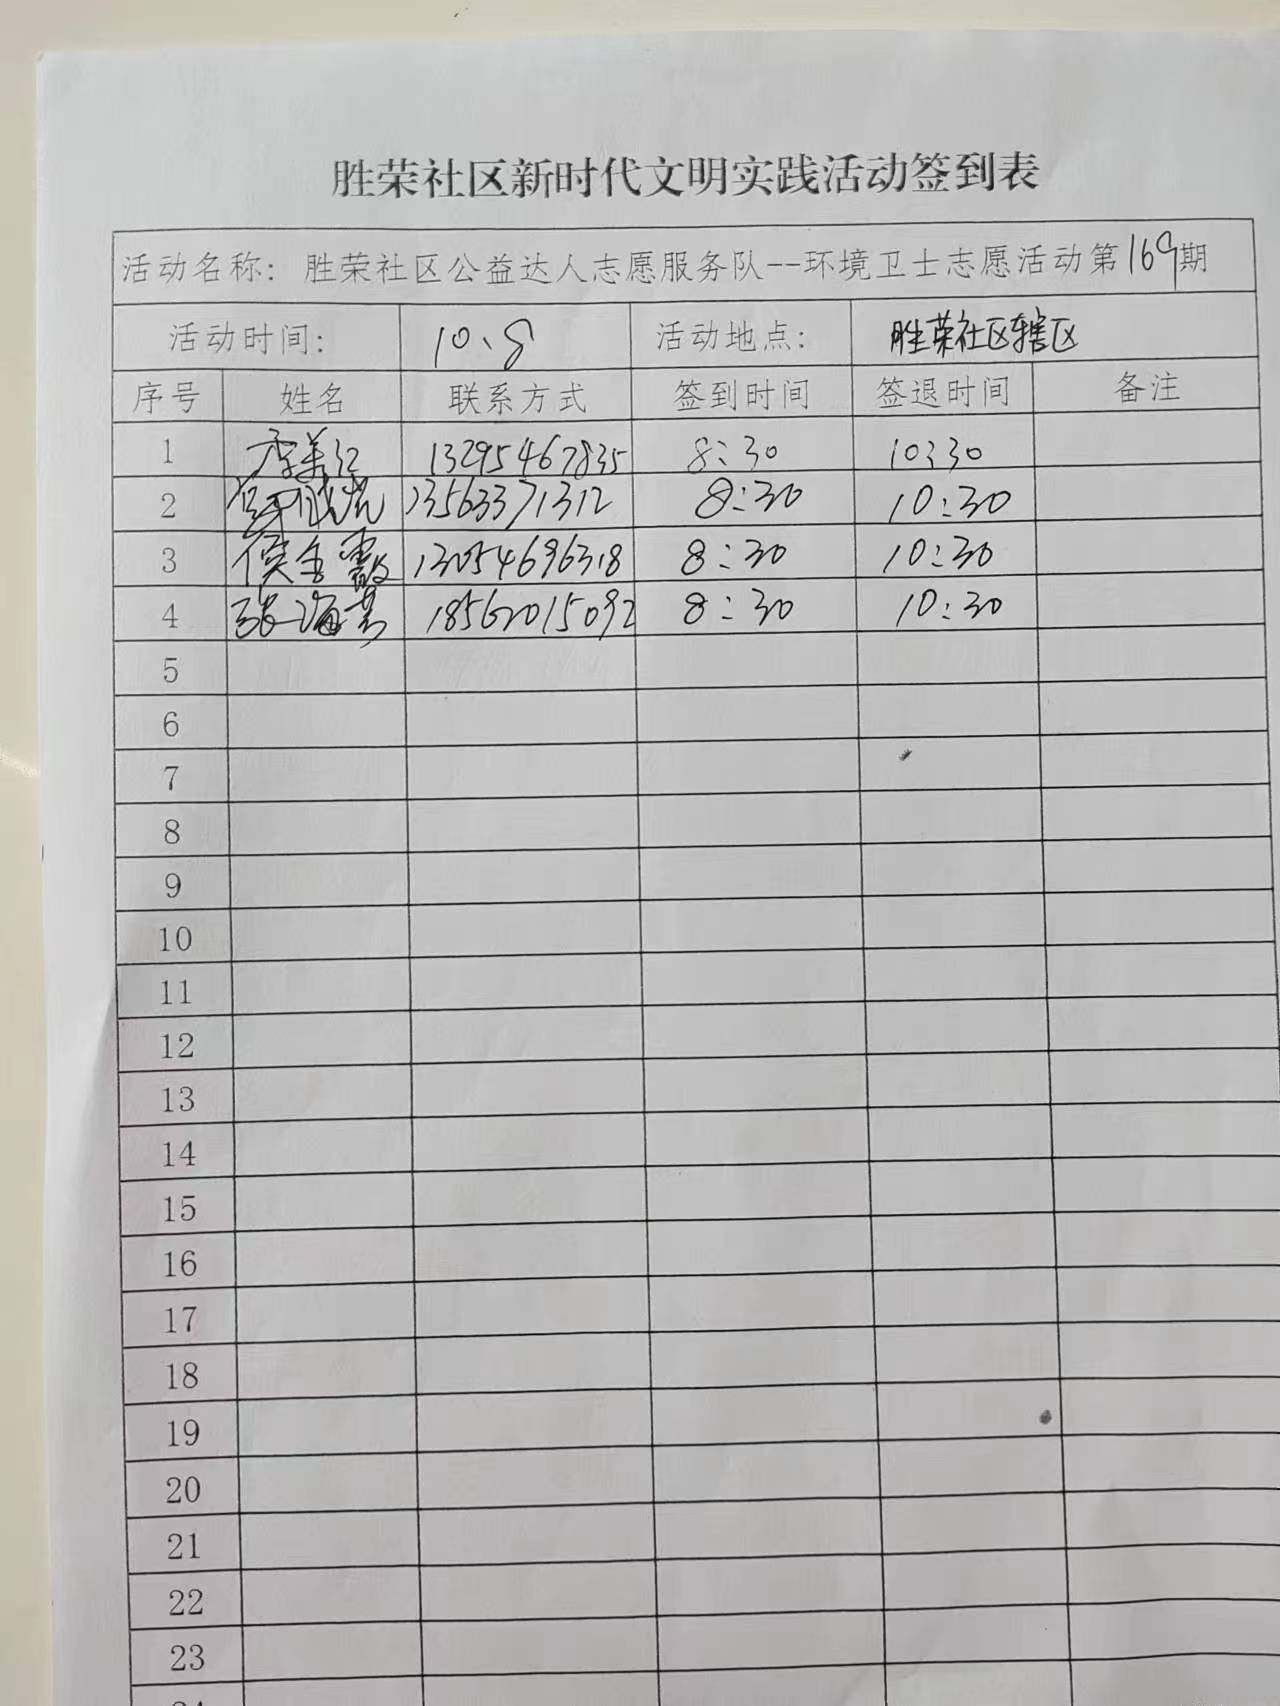 胜荣社区新时代文明实践活动签到表
活动名称：胜荣社区公益达人志愿服务队--环境卫士志愿活动第169期
活动时间： 10、8 活动地点： 胜荣社区辖区
序号 姓名 联系方式 签到时间 签退时间 备注
1 李美江 13295467835 8:30 10:30
2 13563371312 8:30 10:30
3 侯金霞 13054696318 8:30 10:30
4 张海 18562015092 8:30 10:30
5
6
7
8
9
10
11
12
13
14
15
16
17
18
19
20
21
22
23